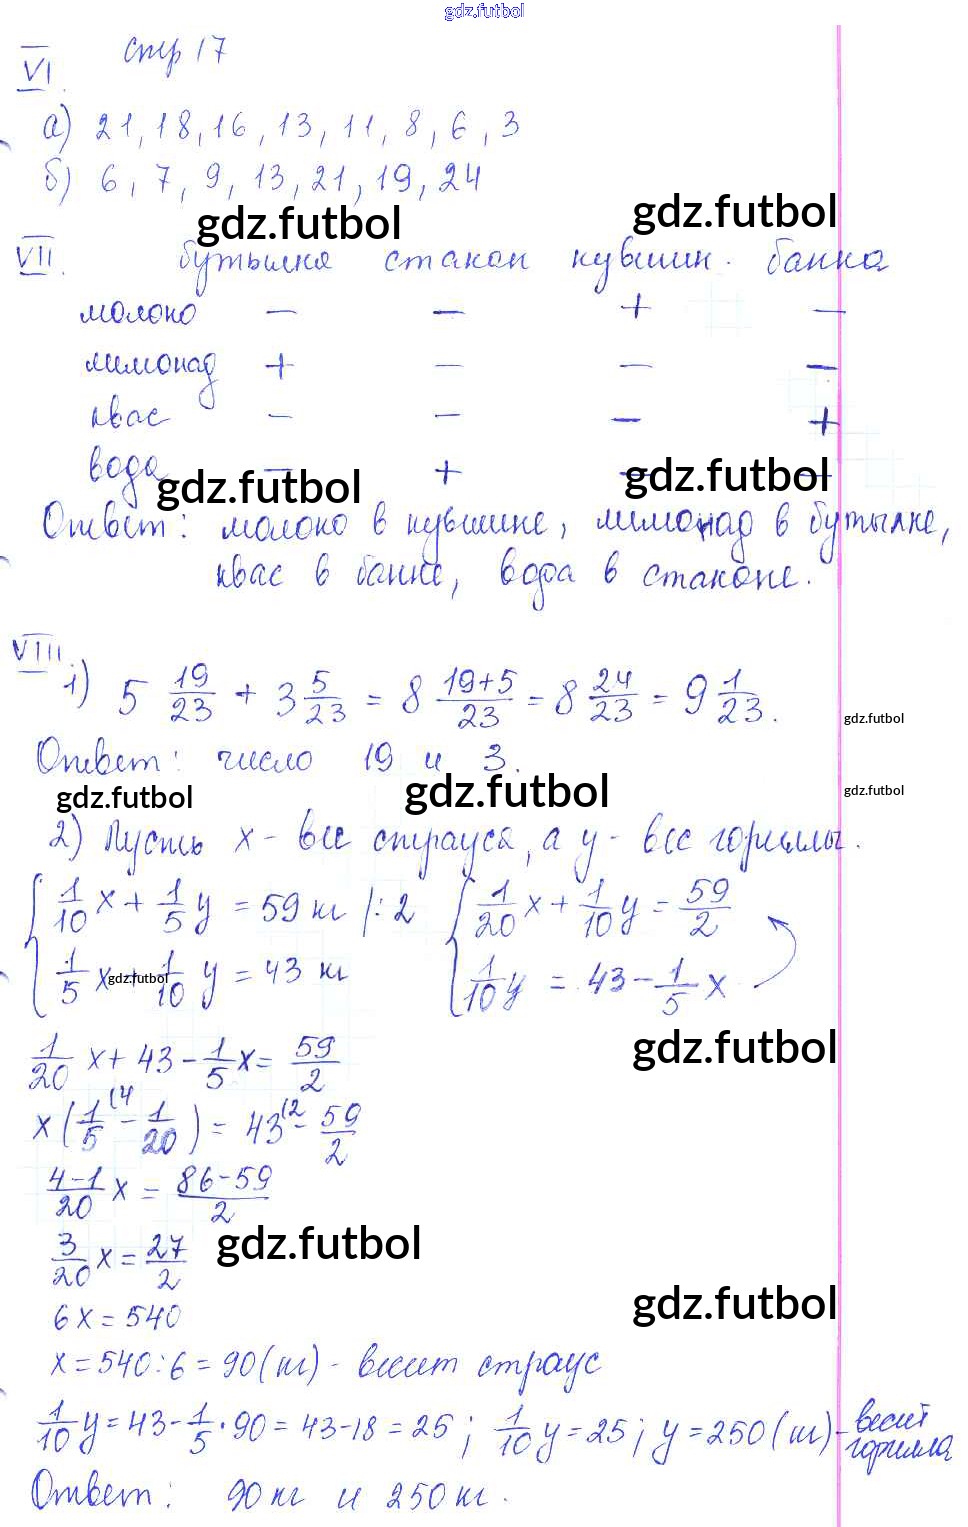 gdz.futbol
VI. стр 17
а) 21, 18, 16, 13, 11, 8, 6, 3
б) 6, 7, 9, 13, 21, 19, 24
gdz.futbol gdz.futbol
VII. бутылка стакан кувшин. банка
молоко − − + −
лимонад + − − −
квас − − − +
вода − + − −
gdz.futbol gdz.futbol
Ответ: молоко в кувшине, лимонад в бутылке,
квас в банке, вода в стакане.
VIII.
1) 5 19/23 + 3 5/23 = 8 (19+5)/23 = 8 24/23 = 9 1/23.
gdz.futbol
Ответ: число 19 и 3.
gdz.futbol gdz.futbol gdz.futbol
2) Пусть x - вес страуса, а y - вес гориллы.
{ 1/10 x + 1/5 y = 59 кг /:2 { 1/20 x + 1/10 y = 59/2
1/5 x + 1/10 y = 43 кг 1/10 y = 43 − 1/5 x
gdz.futbol
1/20 x + 43 − 1/5 x = 59/2
gdz.futbol
x (1/5 (4 − 1/20) = 43 (2 − 59/2
(4−1)/20 x = (86−59)/2
3/20 x = 27/2
gdz.futbol
6x = 540
gdz.futbol
x = 540 : 6 = 90 (кг) - весит страус
1/10 y = 43 − 1/5 · 90 = 43 − 18 = 25 ; 1/10 y = 25 ; y = 250 (кг) - весит горилла
Ответ: 90 кг и 250 кг.